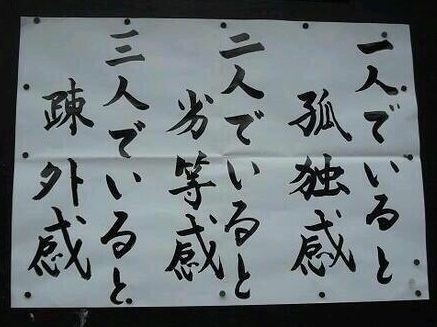 一人でいると
孤独感
二人でいると
劣等感
三人でいると
疎外感